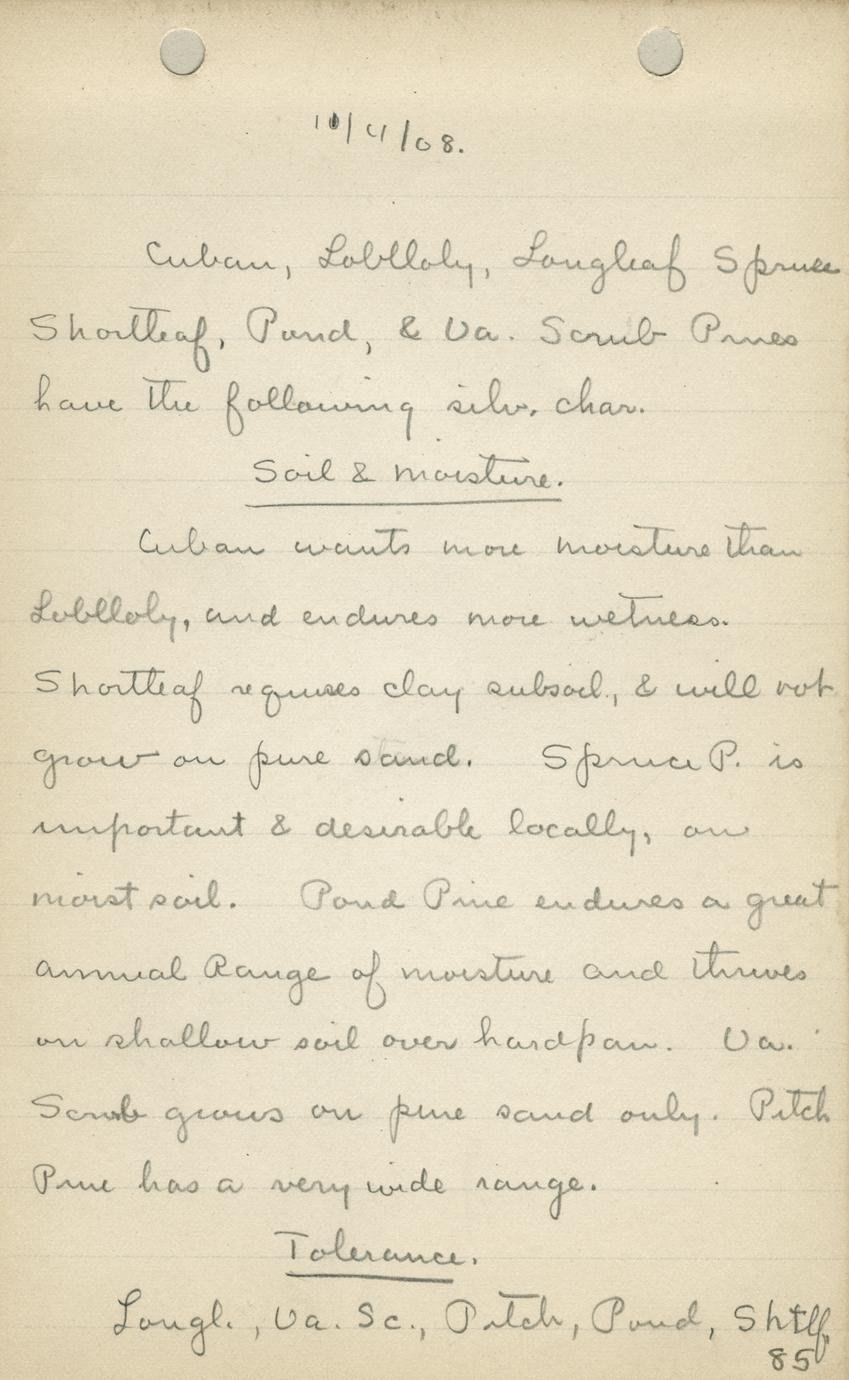 11/4/08.
Cuban, Loblloly, Longleaf Spruce
Shortleaf, Pond, & Va. Scrub Pines
have the following silv. char.
Soil & Moisture.
Cuban wants more moisture than
Loblloly, and endures more wetness.
Shortleaf requires clay subsoil, & will not
grow on pure sand. Spruce P. is
important & desirable locally, on
moist soil. Pond Pine endures a great
annual Range of moisture and thrives
on shallow soil over hardpan. Va.
Scrub grows on pure sand only. Pitch
Pine has a very wide range.
Tolerance.
Longl., Va. Sc., Pitch, Pond, Shtlf,
85